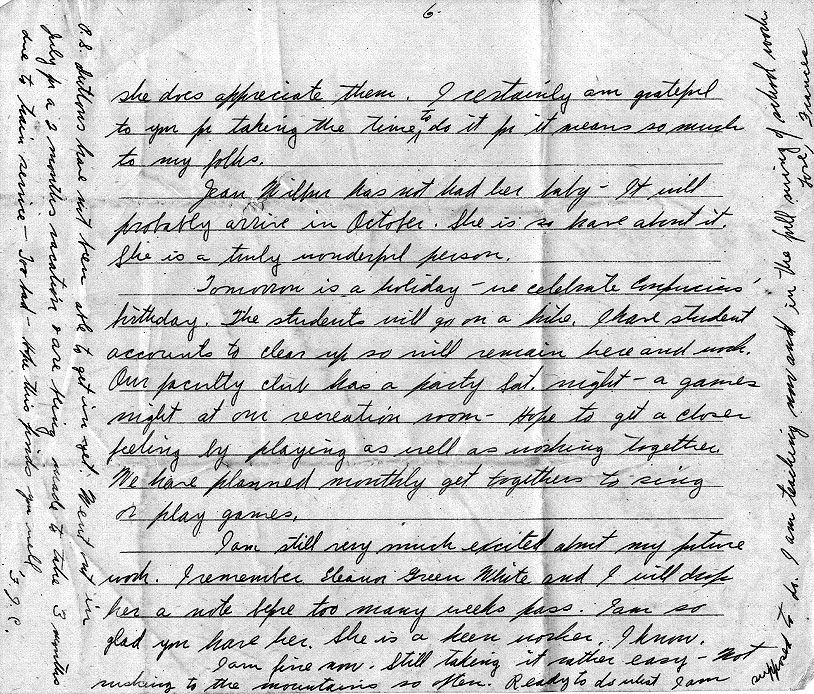 6.
she does appreciate them. I certainly am grateful
to you for taking the time, to do it for it means so much
to my folks.
Jean Wilbur has not had her baby - It will
probably arrive in October. She is so brave about it.
She is a truly wonderful person.
Tomorrow is a holiday - we celebrate Confucius'
birthday. The students will go on a hike. I have student
accounts to clear up so will remain here and work.
Our faculty club has a party Sat. night - a games
night at our recreation room - Hope to get a closer
feeling by playing as well as working together.
We have planned monthly get togethers to sing
or play games.
I am still very much excited about my future
work. I remember Eleanor Green White and I will drop
her a note before too many weeks pass. I am so
glad you have her. She is a keen worker, I know.
I am fine now. Still taking it rather easy - Not
rushing to the mountains so often. Ready to do what I am
supposed to do. I am teaching now and in the full swing of school work
Love, Frances
P.S. Suttons have not been able to get in yet. Went out in
July for a 2 months vacation & are being made to take 3 months
due to train service - Too bad - Hope this finds you well,
F.J.C.